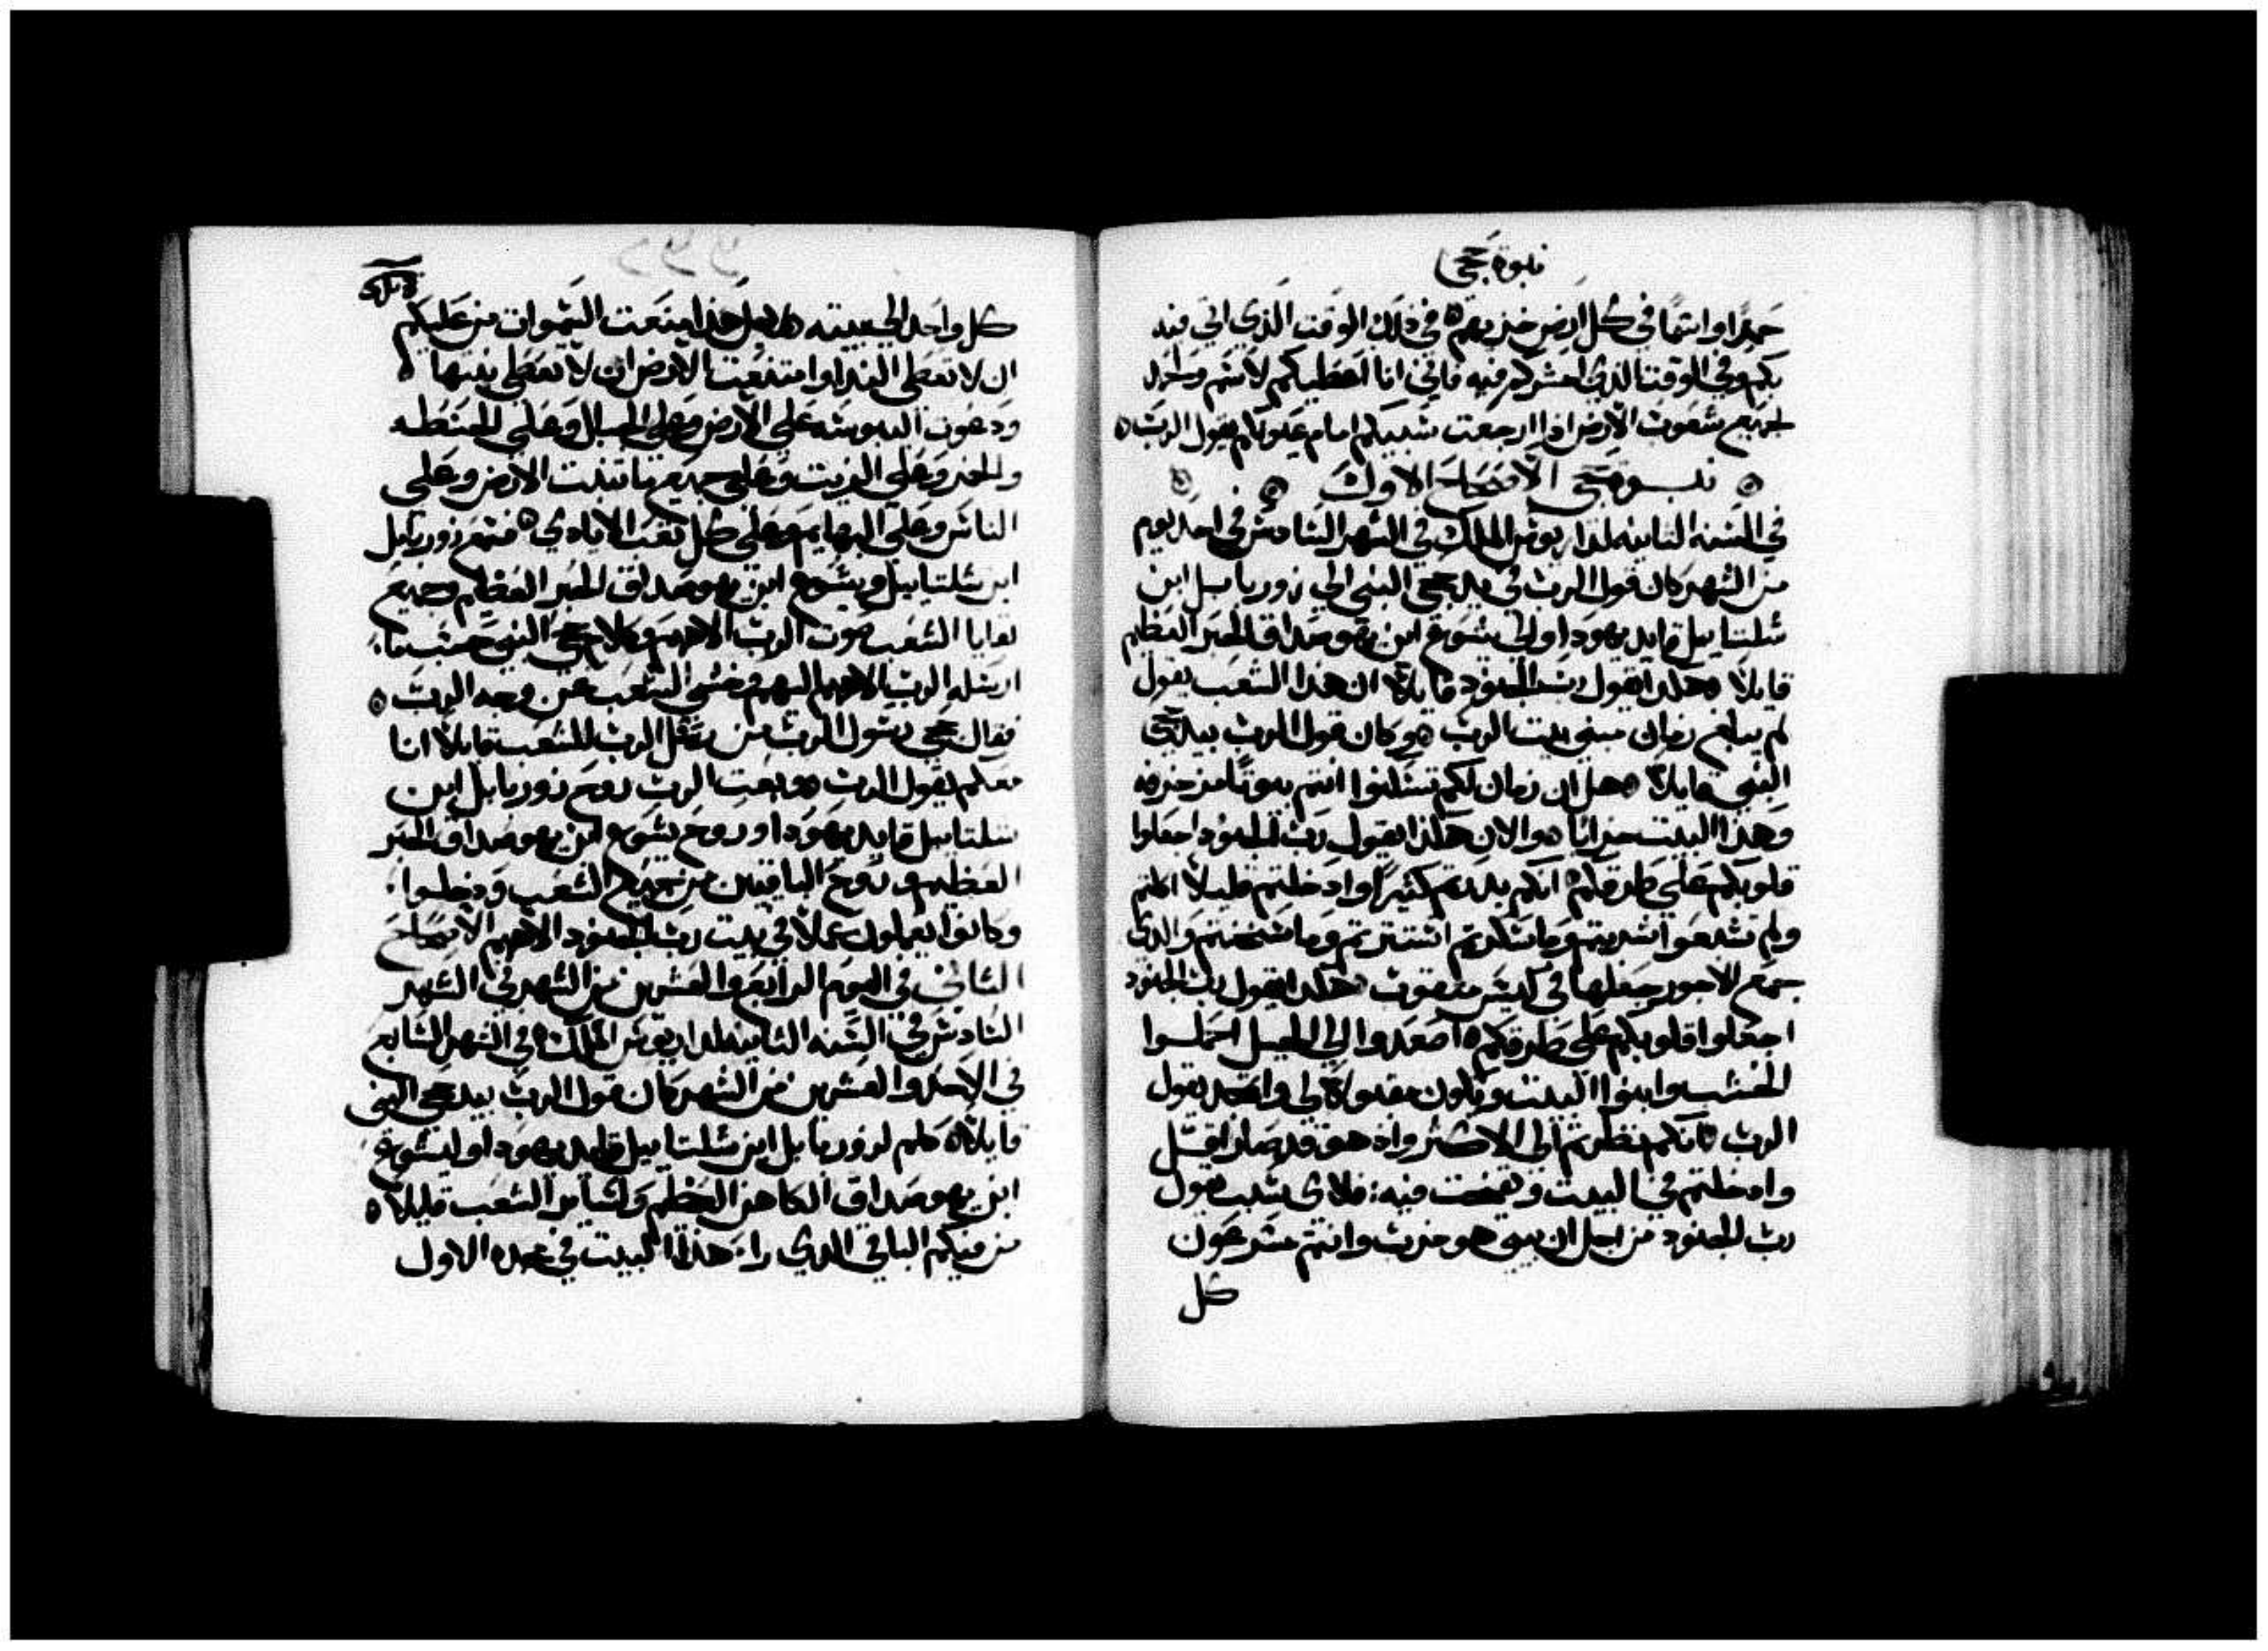 نبوة حجى
حميدا واسما في كل ارض خزيهم في ذلك الوقت الذي اتي فيه
بكم وفي الوقت الذي احشركم فيه فاني انا اعطيكم لاسم وحمد
لجميع شعوب الارض اذا ارجعت سبيكم امام عيونكم يقول الرب
نبوة حجى الاصحاح الاول
في السنه الثانيه لداريوش الملك في الشهر السادس في احد يوم
من الشهر كان قول الرب في يد حجى النبي الي زوربابيل ابن
شلتاييل قايد يهودا والي يشوع ابن يهوصداق الحبر العظيم
قايلا هكذا يقول رب الجنود قايلا ان هذا الشعب يقول
لم يبلغ زمان مبني بيت الرب وكان قول الرب بيد حجى
النبي قايلا هل ان زمان لكم تسكنوا انتم بيوتا مزخرفه
وهذا البيت خرابا والان هكذا يقول رب الجنود اجعلوا
قلوبكم على طرقكم انكم بذرتم كثيرا وادخلتم قليلا اكلتم
ولم تشبعوا شربتم وما سكرتم استترتم وما سخنتم والذي
جمع الاجور جعلها في كيس منقوب هكذا يقول رب الجنود
اجعلوا قلوبكم على طرقكم اصعدوا الي الجبل احملوا
الخشب وابنوا البيت ويكون مقبولا لي واتمجد يقول
الرب فانكم نظرتم الى الاكثر واذ هو قد صار اقل
وادخلتم في البيت ونفخت فيه فلاى سبب يقول
رب الجنود من اجل ان بيتي هو خرب وانتم مسرعون
كل
كل واحد الي بيته من اجل هذا امتنعت السموات من عليكم
ان لا تعطى الندا وامتنعت الارض ان لا تعطى نبتها
ودعوت اليبوسه على الارض وعلى الجبال وعلى الحنطه
والخمر وعلى الزيت وعلى جميع ما تنبت الارض وعلى
الناس وعلى البهايم وعلى كل تعب الايادي فسمع زوربابل
ابن شلتاييل ويشوع ابن يهوصداق الحبر العظيم وجميع
بقايا الشعب صوت الرب الاههم وكلام حجى النبي حسب ما
ارسله الرب الاههم اليهم وخشي الشعب من وجه الرب
فقال حجى رسول الرب من رسل الرب للشعب قايلا انا
معكم يقول الرب وبعث الرب روح زوربابل ابن
شلتاييل قايد يهودا وروح يشوع ابن يهوصداق الحبر
العظيم وروح الباقيين من جميع الشعب ودخلوا
وكانوا يعملون عملا في بيت رب الجنود الاههم الاصحاح
الثاني في اليوم الرابع والعشرين من الشهر في الشهر
السادس في السنه الثانيه لداريوش الملك في الشهر السابع
في الاحد والعشرين من الشهر كان قول الرب بيد حجى النبي
قايلا كلم لزوربابل ابن شلتاييل قايد يهودا وليشوع
ابن يهوصداق الكاهن العظيم ولساير الشعب قايلا
من منكم الباقي الذي راي هذا البيت في مجده الاول